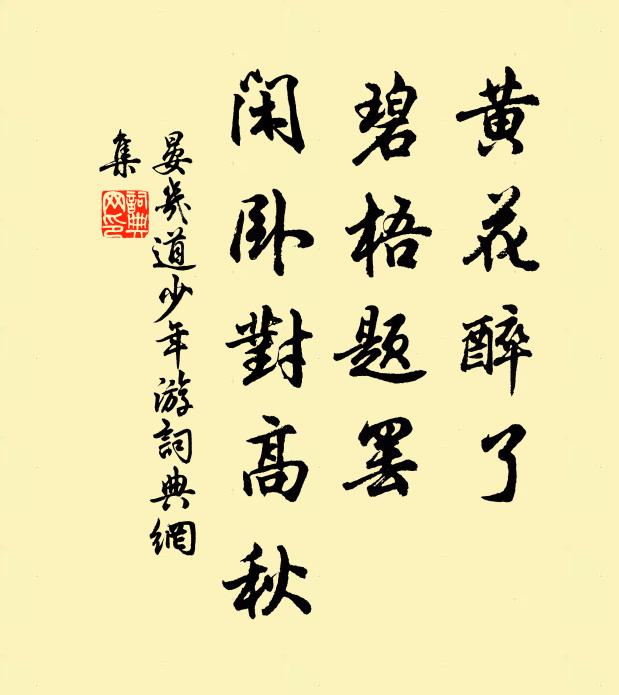 黄花醉了
碧梧題罷
閑卧對高秋
晏幾道少年游詞典網
集
詞典网印